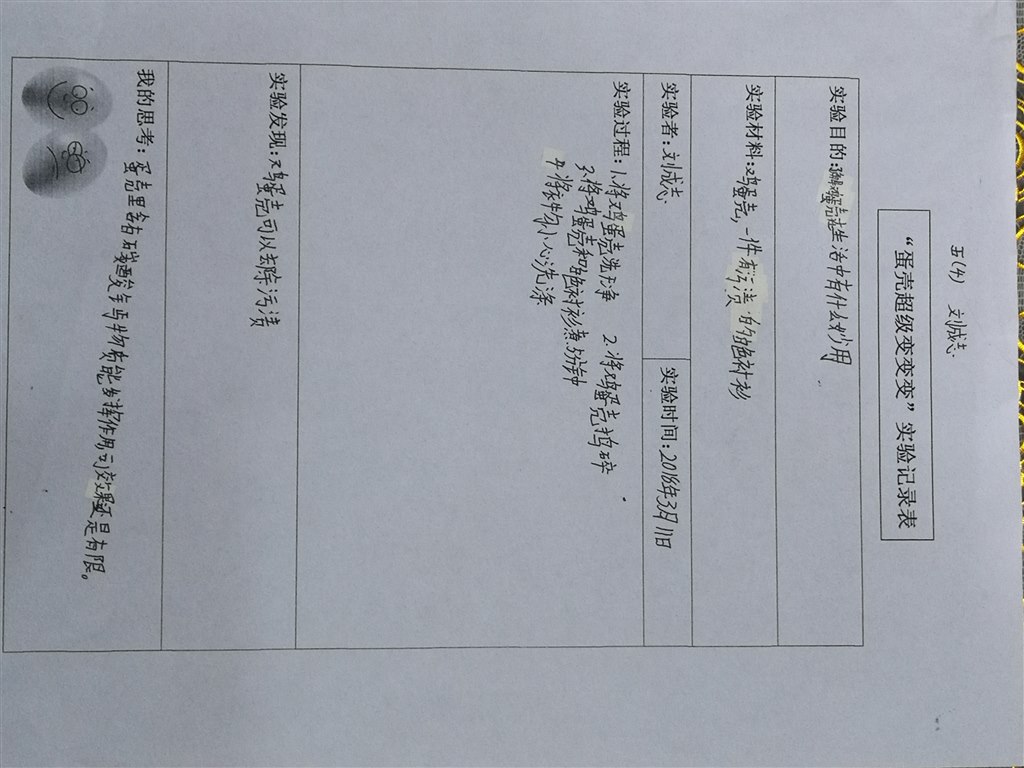 五(4) 刘诚志
“蛋壳超级变变变”实验记录表
实验目的:蛋壳在生活中有什么妙用
实验材料:鸡蛋壳,一件有污渍的白色衬衫
实验者:刘诚志
实验时间:2018年3月11日
实验过程:1.将鸡蛋壳洗干净 2.将鸡蛋壳捣碎
3.将鸡蛋壳和白色衬衫煮5分钟
4.将衣物小心洗涤
实验发现:鸡蛋壳可以去除污渍
我的思考:
蛋壳里含有碳酸钙物质能发挥作用可效果还是有限。